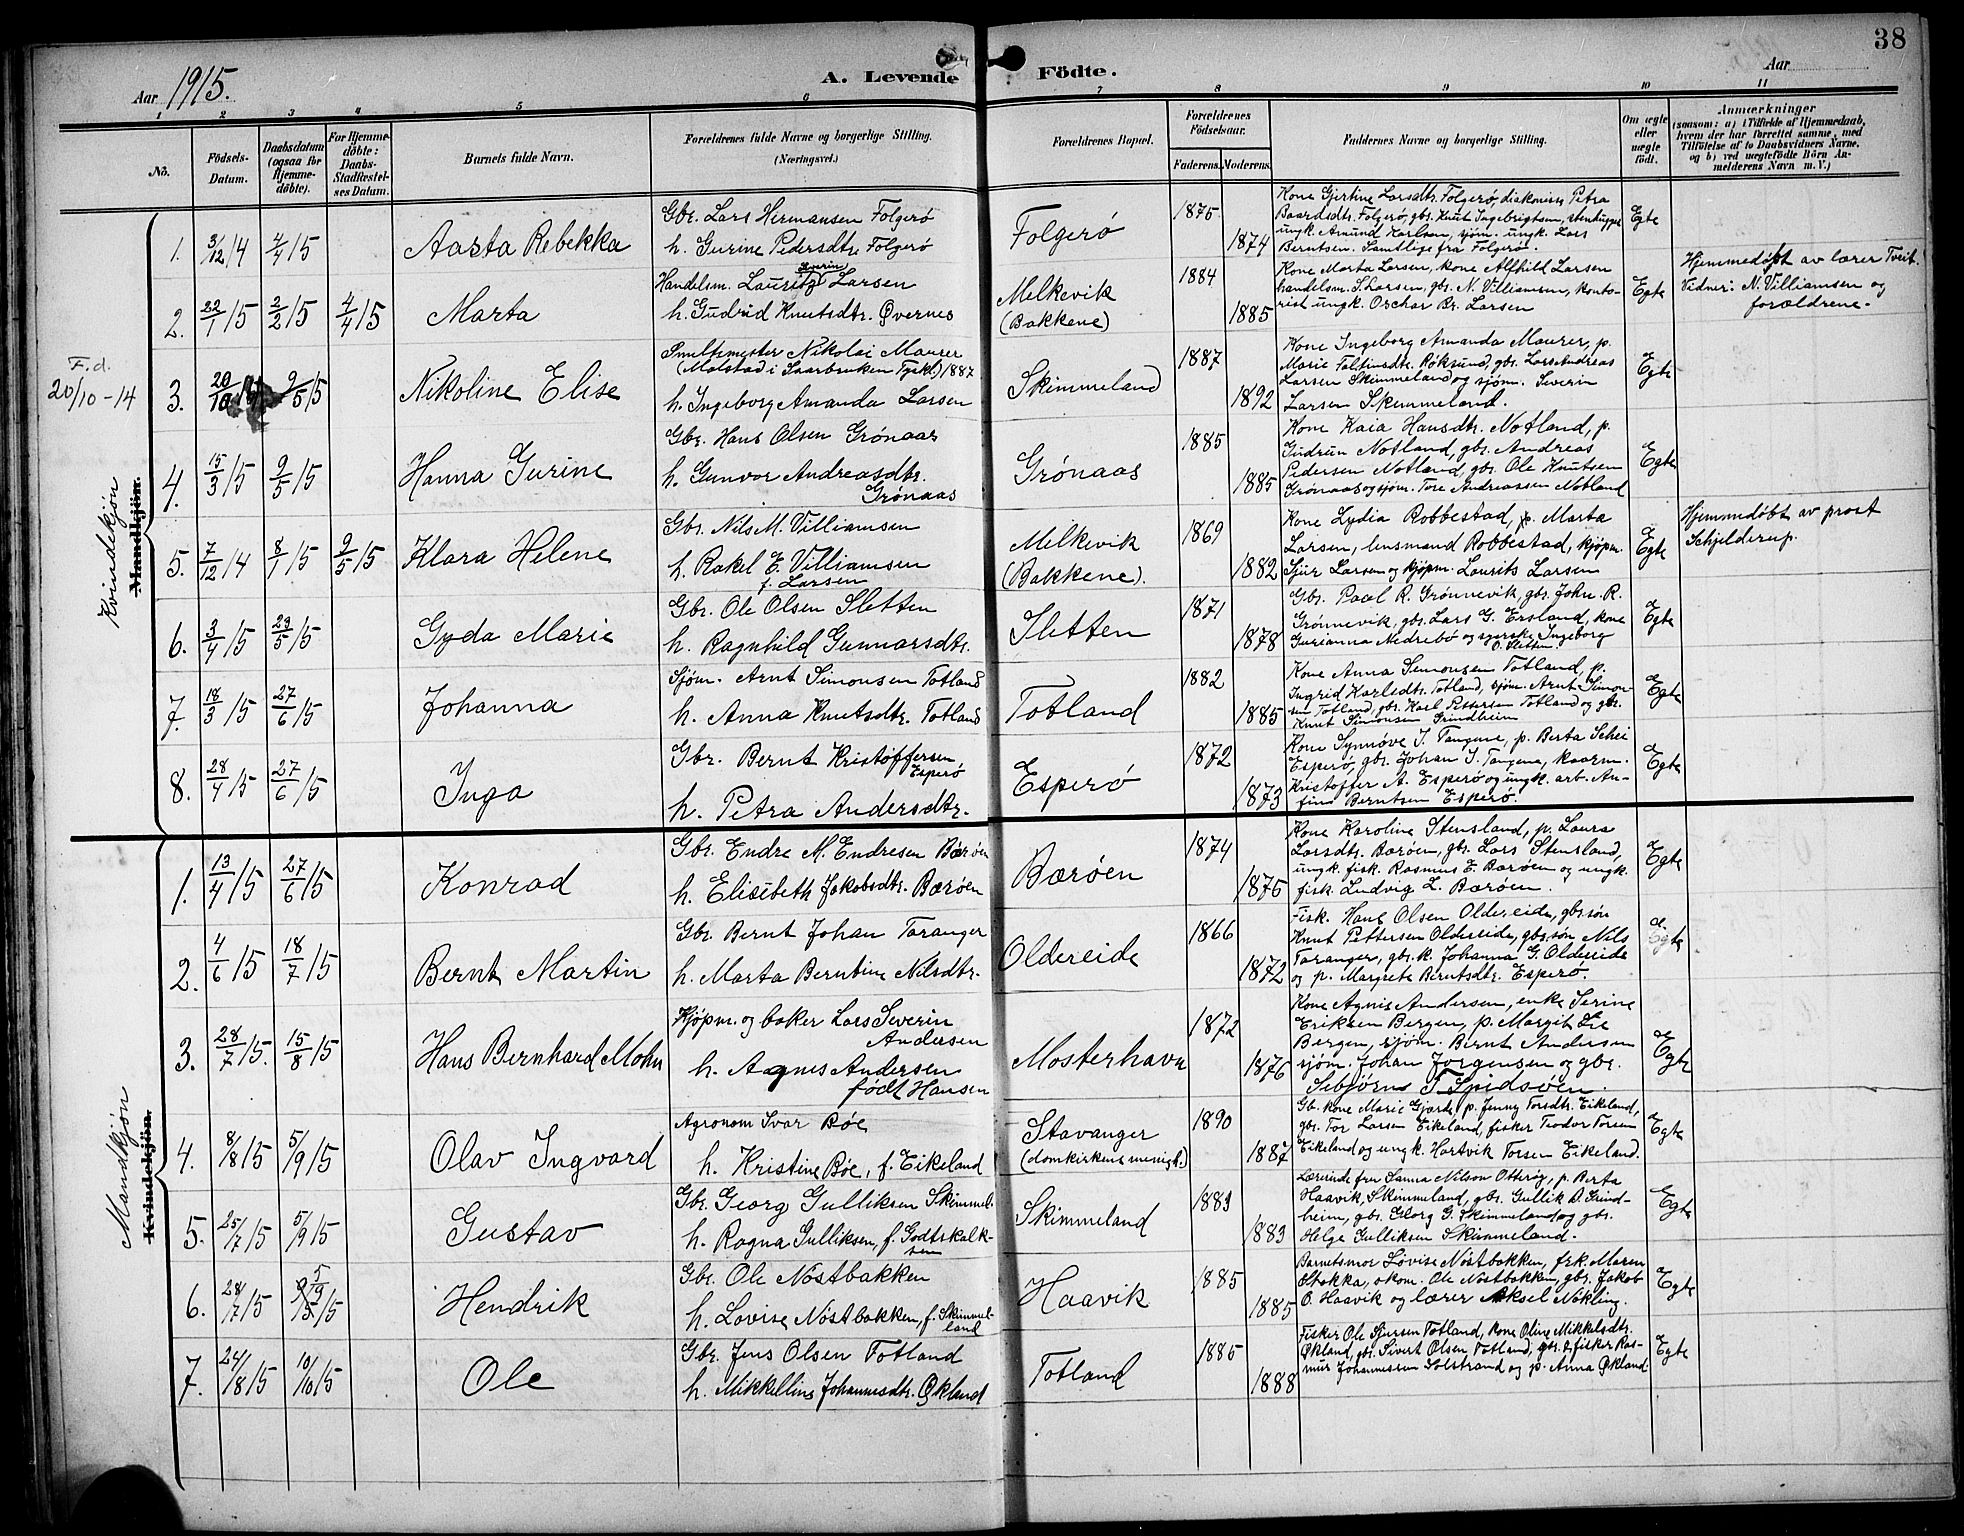 38
Aar 1915.
A. Levende Födte.
Aar
1 2 3 4 5 6 7 8 9 10 11
No.
Födsels-Datum.
Daabsdatum (ogsaa for Hjemmedöbte).
For Hjemmedöbte: Daabs-Stadfæstelses Datum.
Barnets fulde Navn.
Forældrenes fulde Navne og borgerlige Stilling.
(Næringsvei.)
Forældrenes Bopæl.
Forældrenes Födselsaar.
Faderens. Moderens.
Faddernes Navne og borgerlige Stilling.
Om ægte eller uægte födt.
Anmærkninger
(saasom: a) i Tilfælde af Hjemmedaab, hvem der har forrettet samme, med Tilföielse af to Daabsvidners Navne, og b) ved uægtefödte Börn Anmelderens Navn m. V.)
Kvindekjøn
Mandkjön.
1. 3/12 14 4/4 15 Aasta Rebekka
Gbr. Lars Hermansen Folgerø
h. Gurine Pedersdtr. Folgerø
Folgerø 1875 1874
Kone Gjertine Larsdtr. Folgerø, diakonisse Petra
Baardsdtr. Folgerø, gbr. Knut Ingebrigtsen,
ungk. Amund Karlsen, sjøm. ungk. Lars
Berntsen. Samtlige fra Folgerø.
Egte
2. 22/1 15 2/2 15 4/4 15 Marta
Handelsm. Lauritz Severin Larsen
h. Gudrid Knutsdtr. Øvernes
Melkevik
(Bakkene)
1884 1885
Kone Marta Larsen, kone Alfhild Larsen
handelsm. S. Larsen, gbr. N. Villiamsen, konto-
rist ungk. Oschar Br. Larsen
Egte
Hjemmedøpt av lærer Tveit.
Vidner: N. Villiamsen og
forældrene.
F. d.
20/10-14
3. 20/10 14 9/5 15 Nikoline Elise
Smeltemester Nikolai Maurer
(Malstad i Saarbruken Tyskl.) 1887
h. Ingeborg Amanda Larsen
Skimmeland 1887 1892
Kone Ingeborg Amanda Maurer, p.
Marie Røksund, gbr. Lars Andreas
Larsen Skimmeland og sjøm. Severin
Larsen Skimmeland.
Egte
4. 15/3 15 9/5 15 Hanna Gurine
Gbr. Hans Olsen Grønaas
h. Gunvor Andreasdtr.
Grønaas
Grønaas 1885 1885
Kone Kaia Hansdtr. Notland, p.
Gudrun Notland, gbr. Andreas
Pedersen Notland, gbr. Ole Knutsen
Grønaas og sjøm. Tore Andreassen Notland
Egte
5. 7/12 14 8/1 15 9/5 15 Klara Helene
Gbr. Nils M. Villiamsen
h. Rakel E. Villiamsen
f. Larsen
Melkevik
(Bakkene).
1869 1882
Kone Lydia Robbestad, p. Marta
Larsen, lensmand Robbestad, kjøpm.
Sjur Larsen og kjøpm. Laurits Larsen
Egte
Hjemmedøbt av prost
Schjelderup.
6. 3/4 15 29/5 15 Gyda Marie
Gbr. Ole Olsen Sletten
h. Ragnhild Gunnarsdtr.
Sletten 1871 1878
Gbr. Paal R. Grønnevik, gbr. John R.
Grønnevik, gbr. Lars G. Ersland, kone
Gurianna Nedrebø og syerske Ingeborg
O. Sletten.
Egte
7. 18/3 15 27/6 15 Johanna
Sjøm. Arnt Simonsen Totland
h. Anna Knutsdtr. Totland
Totland 1882 1885
Kone Anna Simonsen Totland, p.
Ingrid Karlsdtr. Totland, sjøm. Arnt Simon-
sen Totland, gbr. Karl Pettersen Totland og gbr.
Knut Simonsen Grindheim
Egte
8. 28/4 15 27/6 15 Inga
Gbr. Bernt Kristoffersen
Esperø
h. Petra Andersdtr.
Esperø 1872 1873
Kone Synnøve J. Tangene, p. Berta Schei
Esperø, gbr. Johan J. Tangene, kaarm.
Kristoffer A. Esperø og ungk. arb. An-
fin Berntsen Esperø.
Egte
Mandkjøn
Kvindekjön.
1. 13/4 15 27/6 15 Konrad
Gbr. Endre M. Endresen Bærøen
h. Elisebeth Jakobsdtr. Bærøen
Bærøen 1874 1875
Kone Karoline Stensland, p. Laura
Larsdtr. Bærøen, gbr. Lars Stensland,
ungk. fisk. Rasmus E. Bærøen og ungk.
fisk. Ludvig L. Bærøen.
Egte
2. 4/6 15 18/7 15 Bernt Martin
Gbr. Bernt Johan Taranger
h. Marta Berntine Nilsdtr.
Oldereide 1866 1872
Fisk. Hans Olsen Oldereide, gbr.søn
Knut Pettersen Oldereide, gbr.søn Nils
Taranger, gbr.k. Johanna G. Oldereide
og p. Margrete Berntsdtr. Esperø.
Egte
3. 28/7 15. 15/8 15 Hans Bernhard Mohn
Kjøpm. og baker Lars Severin
Andersen
h. Agnes Andersen
født Hansen
Mosterhavn 1872 1876
Kone Agnes Andersen, enke Serine
Eriksen Bergen, p. Margit Lie
Bergen, sjøm. Bernt Andersen
sjøm. Johan Jørgensen og gbr.
Sebjørn T. Spidsøen.
Egte
4. 8/8 15 5/9 15 Olav Ingvard
Agronom Ivar Bøe
h. Kristine Bøe, f. Eikeland
Stavanger
(domkirkens menigh.)
1890 1887
Gb. kone Marie Gjærde, p. Jenny Torsdtr. Eikeland,
gbr. Tor Larsen Eikeland, fisker Teodor Torsen
Eikeland og ungk. Hartvik Torsen Eikeland.
Egte
5. 25/7 15 5/9 15 Gustav
Gbr. Georg Gulliksen Skimmel.
h. Ragna Gulliksen, f. Godtskalk-
sen
Skimmeland 1883 1883
Lærerinde fru Sanna Nilson Otterøy, p. Berta
Haavik, Skimmeland, gbr. Gullik D. Grind-
heim, gbr. Georg G. Skimmeland og gbr.
Helge Gulliksen Skimmeland.
Egte
6. 28/7 15 5/9 15 Hendrik
Gbr. Ole Nøstbakken
h. Lovise Nøstbakken, f. Skimmel-
land
Haavik 1885 1885
Barnetsmor Lovise Nøstbakken, frk. Maren
Stokka, økom. Ole Nøstbakken, gbr. Jakob
O. Haavik og lærer Aksel Nøkling.
Egte
7. 24/8 15 10/10 15 Ole
Gbr. Jens Olsen Totland
h. Mikkeline Johannesdtr. Økland
Totland 1885 1888
Fisker Ole Sjursen Totland, kone Oline Mikkelsdtr.
Økland, gbr. Sivert Olsen Totland, gbr. & fisker Ras-
mus Johannessen Solstrand og p. Anna Økland
Egte